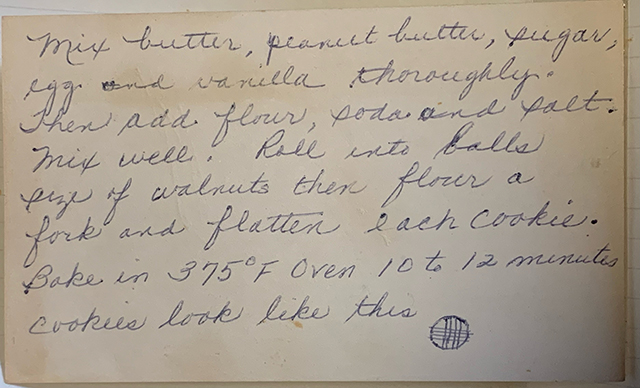 Mix butter, peanut butter, sugar,
egg and vanilla thoroughly.
Then add flour, soda and salt.
Mix well. Roll into balls
size of walnuts then flour a
fork and flatten each cookie.
Bake in 375°F Oven 10 to 12 minutes
cookies look like this